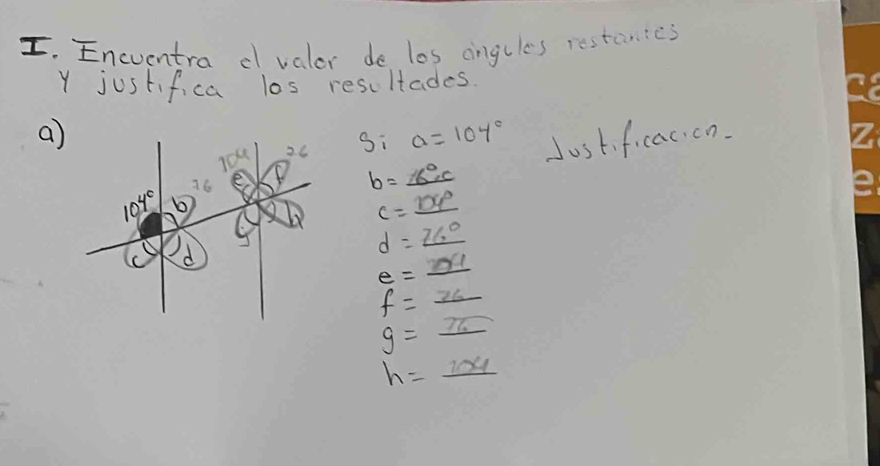 I. Encuentra el valor de los ángulos restantes
y justifica los resultados.
a)
Si a = 104°
Justificación.
104°
b
76
c
d
104
e
26
f
g
h
b = 76°
c =
d = 76°
e = 104
f = 76
g = 76
h = 104
ca
z
e